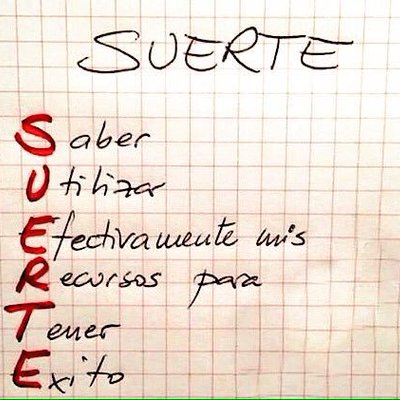 SUERTE
Saber
Utilizar
Efectivamente mis
Recursos para
Tener
Exito